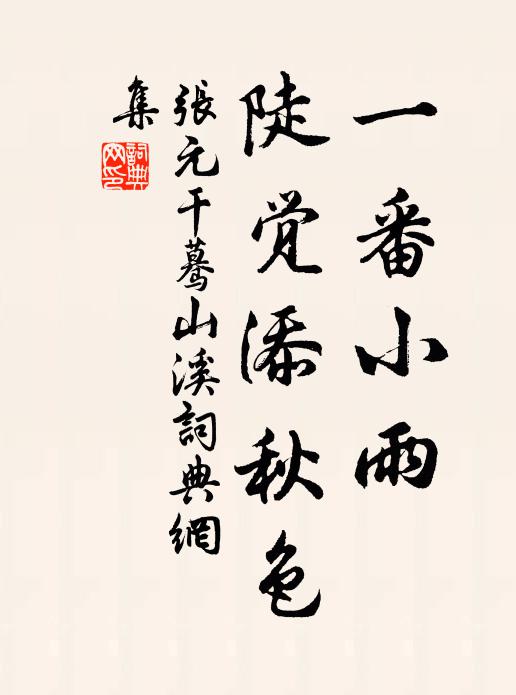 一番小雨
陡觉添秋色
張元干驀山溪詞典網
集
詞典网印